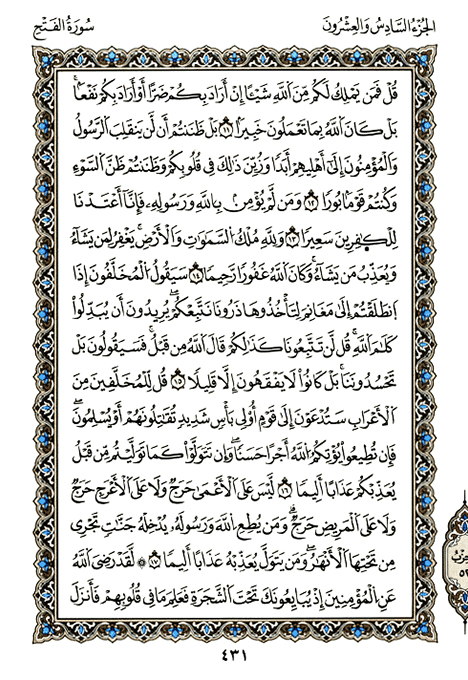 الجُزْءُ السَّادِسُ وَالْعِشْرُونَ
سُورَةُ الفَتْحِ
قُلْ فَمَن يَمْلِكُ لَكُم مِّنَ اللَّهِ شَيْئًا إِنْ أَرَادَ بِكُمْ ضَرًّا أَوْ أَرَادَ بِكُمْ نَفْعًا ۚ
بَلْ كَانَ اللَّهُ بِمَا تَعْمَلُونَ خَبِيرًا ﴿١١﴾ بَلْ ظَنَنتُمْ أَن لَّن يَنقَلِبَ الرَّسُولُ
وَالْمُؤْمِنُونَ إِلَىٰ أَهْلِيهِمْ أَبَدًا وَزُيِّنَ ذَٰلِكَ فِي قُلُوبِكُمْ وَظَنَنتُمْ ظَنَّ السَّوْءِ
وَكُنتُمْ قَوْمًا بُورًا ﴿١٢﴾ وَمَن لَّمْ يُؤْمِن بِاللَّهِ وَرَسُولِهِ فَإِنَّا أَعْتَدْنَا
لِلْكَافِرِينَ سَعِيرًا ﴿١٣﴾ وَلِلَّهِ مُلْكُ السَّمَاوَاتِ وَالْأَرْضِ ۚ يَغْفِرُ لِمَن يَشَاءُ
وَيُعَذِّبُ مَن يَشَاءُ ۚ وَكَانَ اللَّهُ غَفُورًا رَّحِيمًا ﴿١٤﴾ سَيَقُولُ الْمُخَلَّفُونَ إِذَا
انطَلَقْتُمْ إِلَىٰ مَغَانِمَ لِتَأْخُذُوهَا ذَرُونَا نَتَّبِعْكُمْ ۖ يُرِيدُونَ أَن يُبَدِّلُوا
كَلَامَ اللَّهِ ۚ قُل لَّن تَتَّبِعُونَا كَذَٰلِكُمْ قَالَ اللَّهُ مِن قَبْلُ ۖ فَسَيَقُولُونَ بَلْ
تَحْسُدُونَنَا ۚ بَلْ كَانُوا لَا يَفْقَهُونَ إِلَّا قَلِيلًا ﴿١٥﴾ قُل لِّلْمُخَلَّفِينَ مِنَ
الْأَعْرَابِ سَتُدْعَوْنَ إِلَىٰ قَوْمٍ أُولِي بَأْسٍ شَدِيدٍ تُقَاتِلُونَهُمْ أَوْ يُسْلِمُونَ ۖ
فَإِن تُطِيعُوا يُؤْتِكُمُ اللَّهُ أَجْرًا حَسَنًا ۖ وَإِن تَتَوَلَّوْا كَمَا تَوَلَّيْتُم مِّن قَبْلُ
يُعَذِّبْكُمْ عَذَابًا أَلِيمًا ﴿١٦﴾ لَّيْسَ عَلَى الْأَعْمَىٰ حَرَجٌ وَلَا عَلَى الْأَعْرَجِ حَرَجٌ
وَلَا عَلَى الْمَرِيضِ حَرَجٌ ۗ وَمَن يُطِعِ اللَّهَ وَرَسُولَهُ يُدْخِلْهُ جَنَّاتٍ تَجْرِي
مِن تَحْتِهَا الْأَنْهَارُ ۖ وَمَن يَتَوَلَّ يُعَذِّبْهُ عَذَابًا أَلِيمًا ﴿١٧﴾ ۞ لَّقَدْ رَضِيَ اللَّهُ
عَنِ الْمُؤْمِنِينَ إِذْ يُبَايِعُونَكَ تَحْتَ الشَّجَرَةِ فَعَلِمَ مَا فِي قُلُوبِهِمْ فَأَنزَلَ
٤٣١